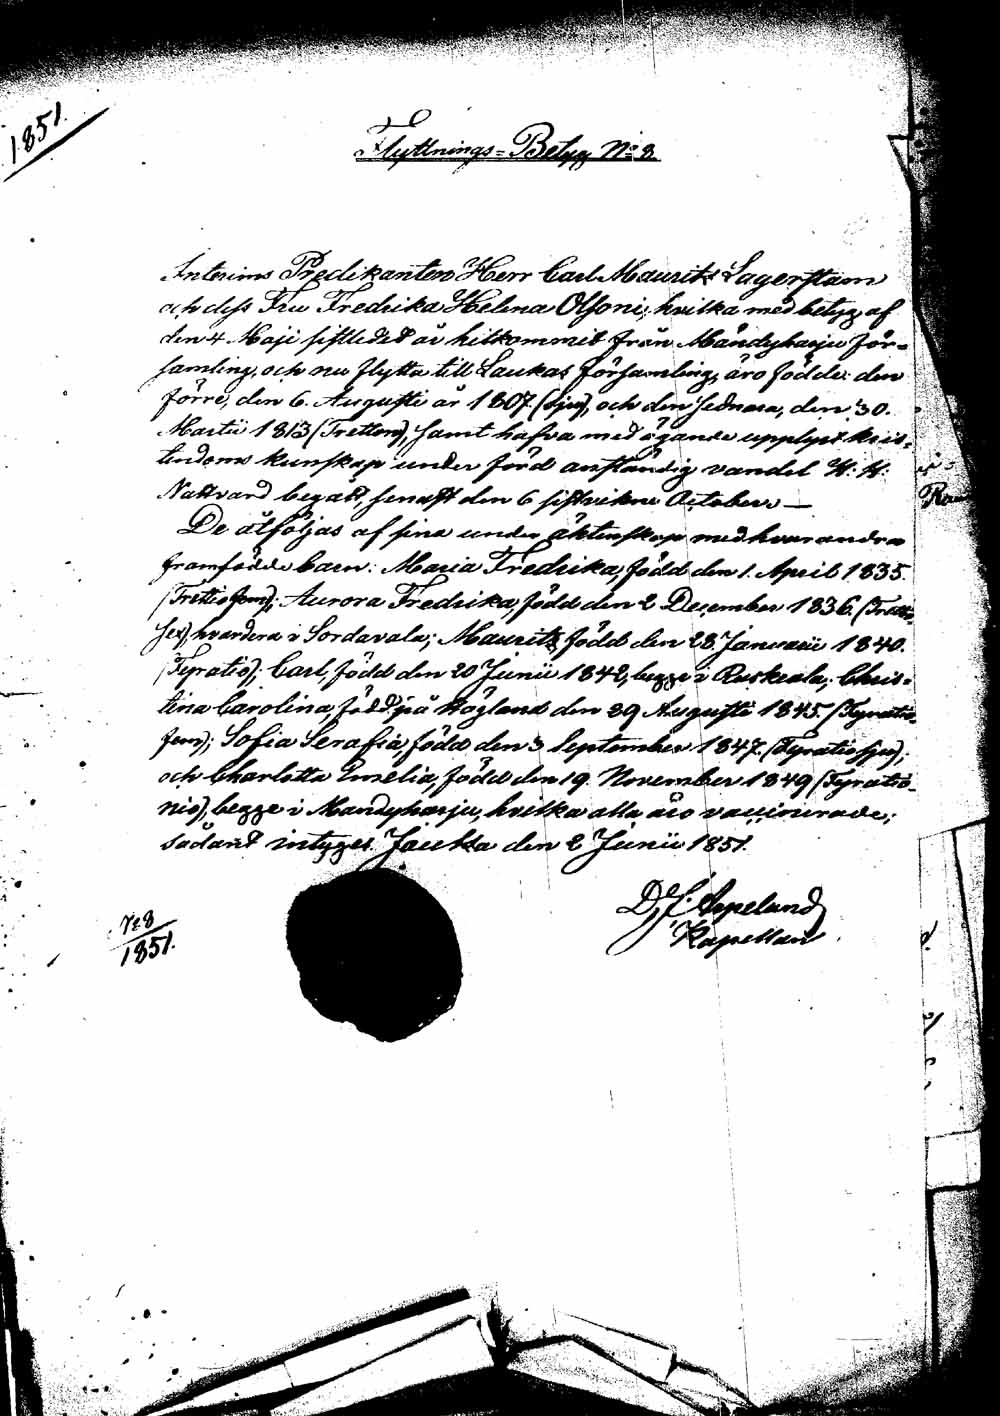 1851.
Flyttnings=Betyg No 8.
Interims Predikanten Herr Carl Mauritz Lagerstam
och dess Fru Fredrika Helena Olsoni, hvilka med betyg af
den 4 Maji sistledet år hitkommit från Mändyharju För=
samling, och nu flytta till Laukas församling, äro födde: den
förre, den 6. Augusti år 1807. (sju), och den sednare, den 30.
Martii 1813 (Tretton), samt hafva med ägande upplyst kris=
tendoms kunskap under förd anständig vandel H. H.
Nattvard begått, senast den 6 sistvikne October. —
De åtföljas af sina under äktenskap med hvarandra
framfödde barn: Maria Fredrika, född den 1. April 1835.
(Trettiofem); Aurora Fredrika, född den 2 December 1836. (Trettio
sex), hvardera i Sordavala; Mauritz, född den 28. Januarii 1840.
(Fyratio); Carl, född den 20 Junii 1842, begge i Ruskeala; Chris=
tina Carolina, född på Högland den 29 Augusti 1845. (Fyratio
fem); Sofia Serafia, född den 3 September 1847. (Fyratiosju);
och Charlotta Emelia, född den 19. November 1849 (Fyratio=
nio), begge i Mandyharju, hvilka alla äro vaccinerade;
sådant intyges. Jaukka den 2 Junii 1851.
D. J. Arpelund
Kapellan
No 8
1851.